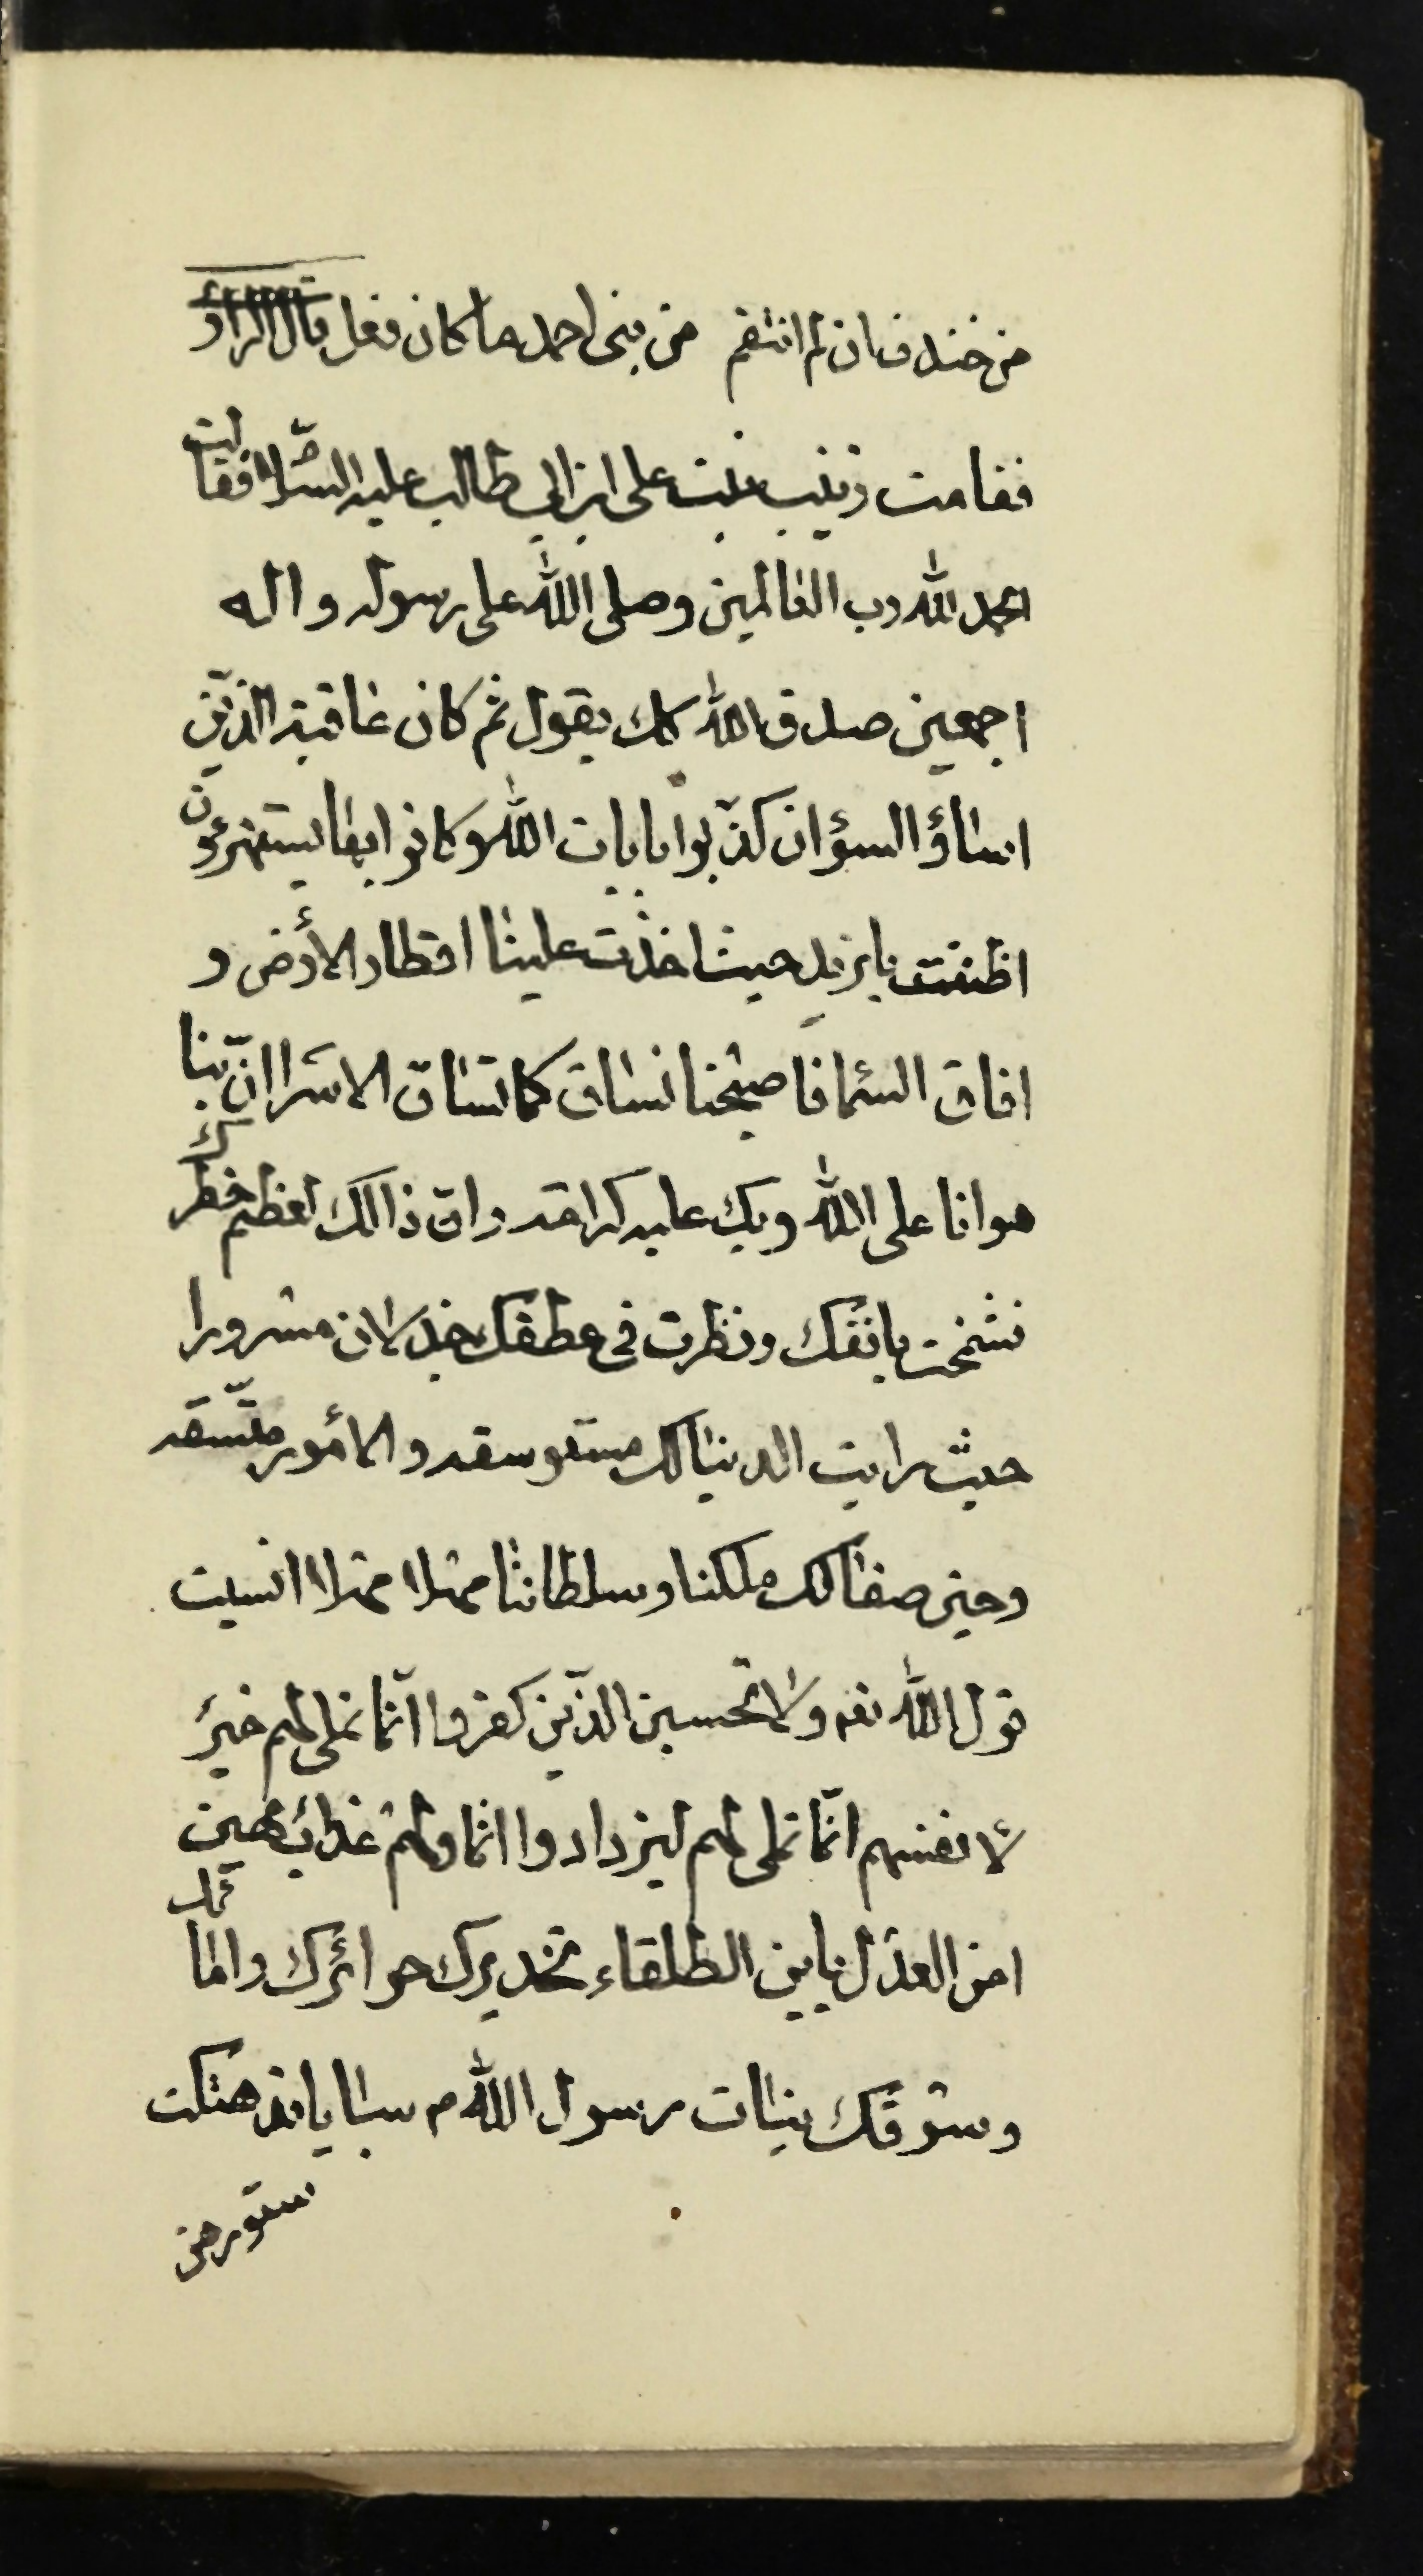 من خندف ان لم انتقم من بنى احمد ما كان فعل قال الراو
فقامت زينب بنت على ابن ابى طالب عليه السّلام فقالت
الحمد لله رب العالمين وصلى الله على رسوله واله
اجمعين صدق الله كك يقول ثم كان عاقبة الذّين
اساؤ السؤان كذّبوا بايات الله وكانوا بها يستهزؤن
اظننت يا يزيد حيث اخذت علينا اقطار الأرض و
افاق السّما فاصبحنا نساق كما تساق الاسرا انّ بنا
هوانا على الله وبك عليه كرامة وان ذالك لعظم خطرك
فشمخت بانفك ونظرت فى عطفك جذلان مسرورا
حيث رايت الدنيا لك مستوسقه والأمور متّسقه
وحين صفا لك ملكنا وسلطاننا مهلا مهلا انسيت
قول الله تعه ولا تحسبن الذّين كفروا انّما نملى لهم خير
لأنفسهم انّما نملى لهم ليزدادوا اثما ولهم عذاب مهين
امن العدل يابن الطلقاء تخديرك حرائرك وامائك
وسوقك بنات رسول الله م سبايا قد هتكت
ستورهن